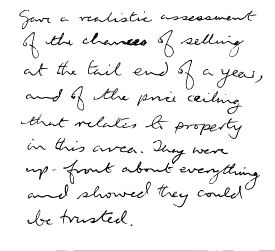 Gave a realistic assessment
of the chances of selling
at the tail end of a year,
and of the price ceiling
that relates to property
in this area. They were
up-front about everything
and showed they could
be trusted.